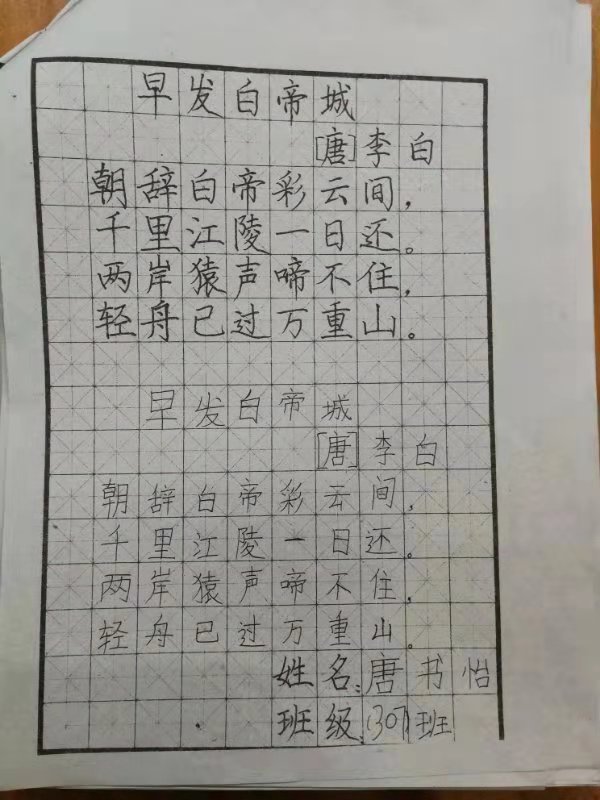 早发白帝城
[唐]李白
朝辞白帝彩云间，
千里江陵一日还。
两岸猿声啼不住，
轻舟已过万重山。
早发白帝城
[唐]李白
朝辞白帝彩云间，
千里江陵一日还。
两岸猿声啼不住，
轻舟已过万重山。
姓名:唐书怡
班级:(307)班